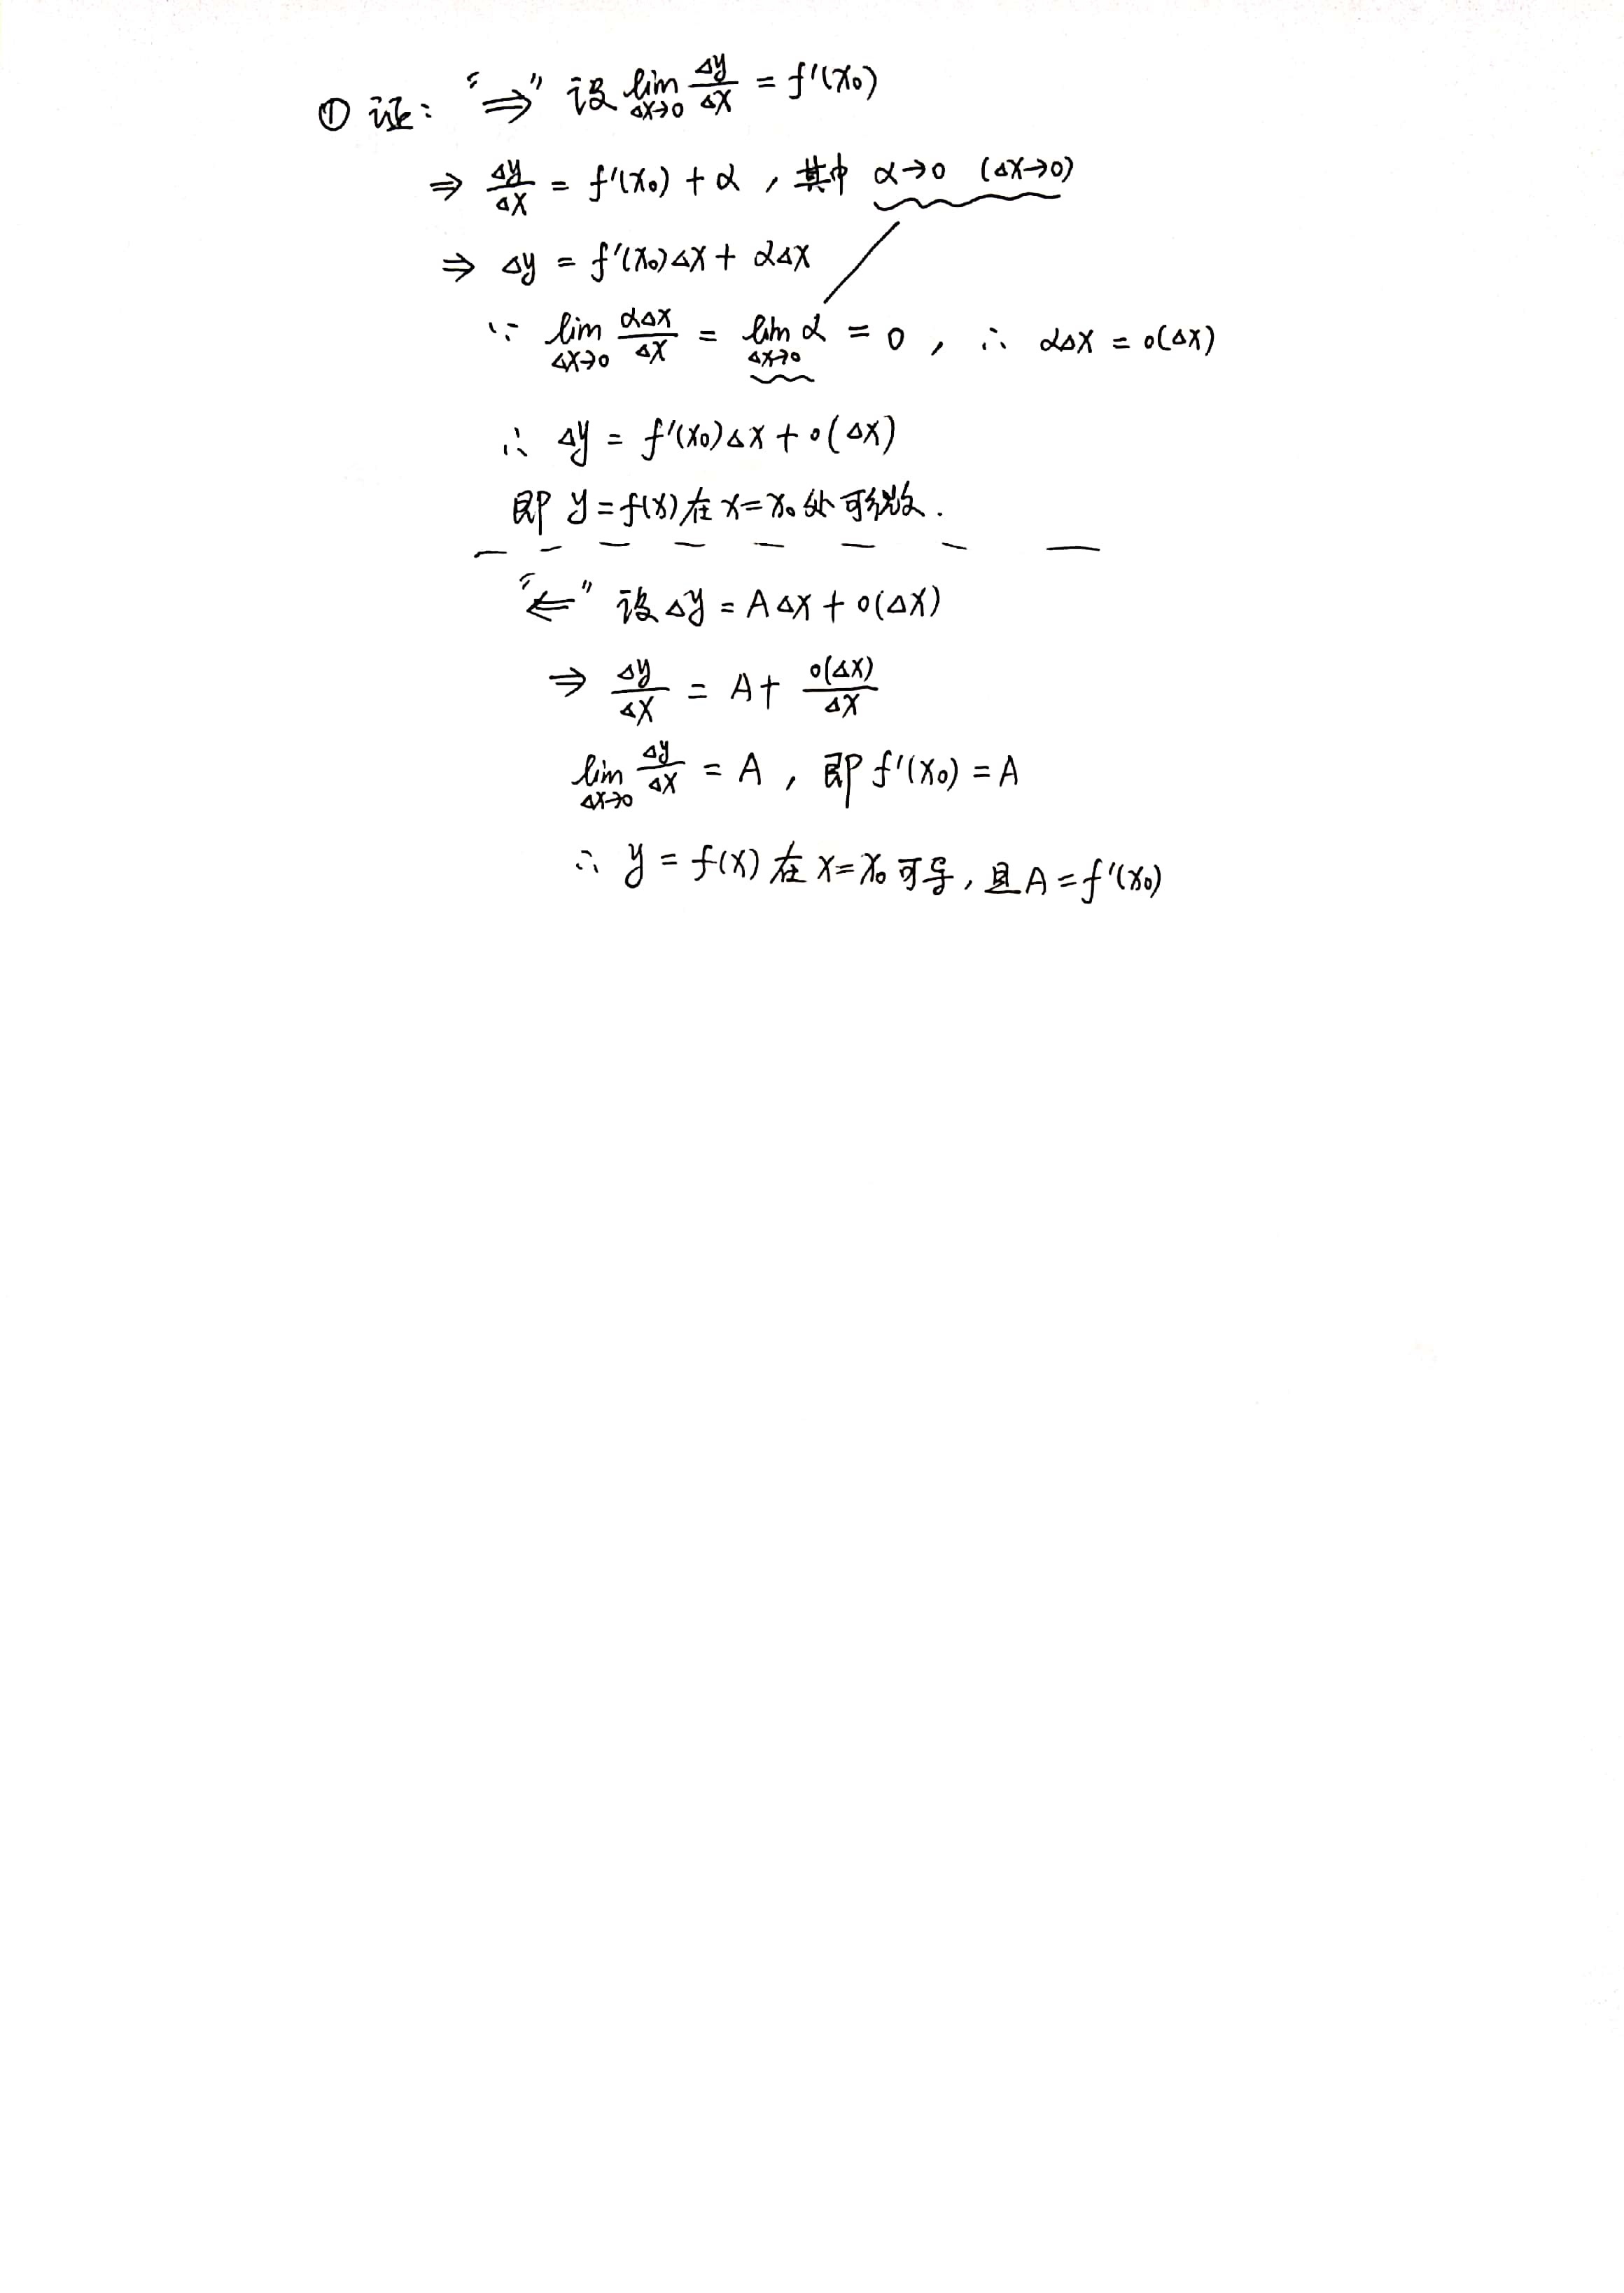 ① 证： “⇒” 设 lim_{Δx→0} Δy/Δx = f'(x₀)
⇒ Δy/Δx = f'(x₀) + α ，其中 α→0 (Δx→0)
⇒ Δy = f'(x₀)Δx + αΔx
∵ lim_{Δx→0} αΔx/Δx = lim_{Δx→0} α = 0 ， ∴ αΔx = o(Δx)
∴ Δy = f'(x₀)Δx + o(Δx)
即 y = f(x) 在 x = x₀ 处可微.
“⇐” 设 Δy = AΔx + o(Δx)
⇒ Δy/Δx = A + o(Δx)/Δx
lim_{Δx→0} Δy/Δx = A ，即 f'(x₀) = A
∴ y = f(x) 在 x = x₀ 可导，且 A = f'(x₀)